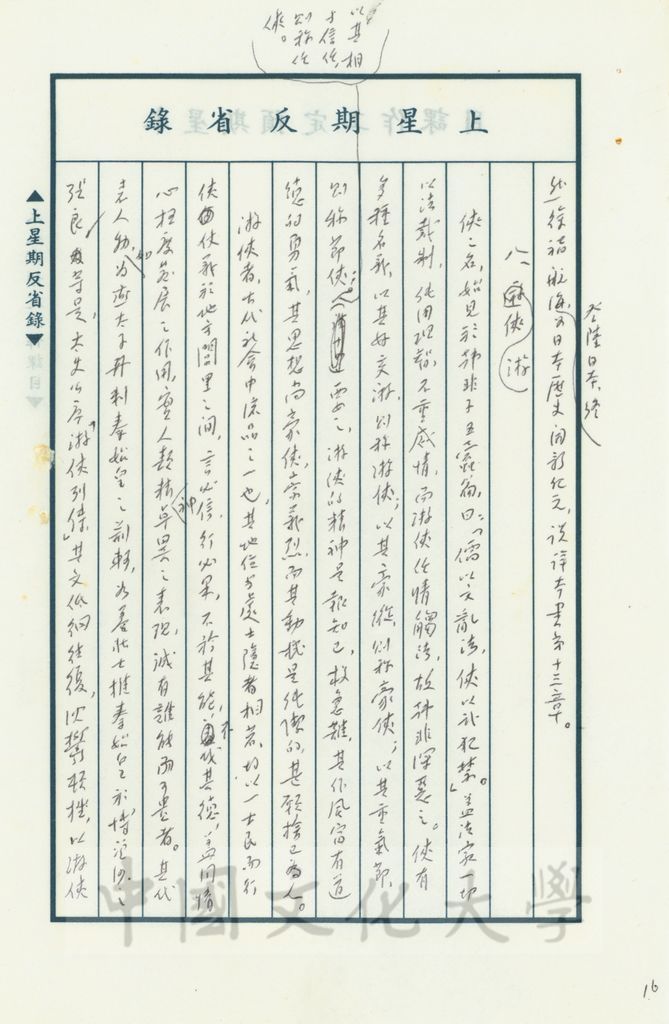 以其相
才信任,
則称任
俠。
上星期反省錄
登陸日本,終
然徐福航海為日本歷史開新紀元,說詳本書第十三章。
八、游俠
俠之名,始見於韩非子五蠹篇,曰:「儒以文亂法,俠以武犯禁。」蓋法家一切
以法裁制,純用理智,不重感情,而游俠任情觸法,故韩非深惡之。俠有
多種名義,以其好交游,則称游俠;以其豪縱,則称豪俠;以其重氣節,
則称節俠;要之,游俠的精神是報知己,救急難,其作風富有道
德的勇氣,其思想尚豪俠,崇義烈,而其動機是純潔的,甚願捨己為人。
游俠者,古代社會中流品之一也,其地位与處士隱者相若,故以一士民而行
俠仗義於地方閭里之間,言必信,行必果,不矜其能,不伐其德,蓋同情
心極度發展之作用,實人類精神卓異之表現,誠有誰能而可貴者。其代
表人物,如為燕太子丹刺秦始皇之荊軻,
張良等是,太史公序「游俠列傳」其文低徊往復,沈鬱頓挫,以游俠
▲上星期反省錄▼
中國文化大學
16